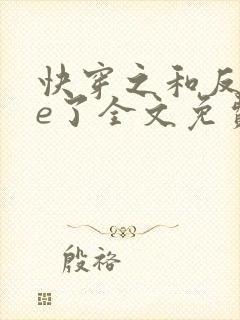 快穿之和反
e了全文免费
殷袼